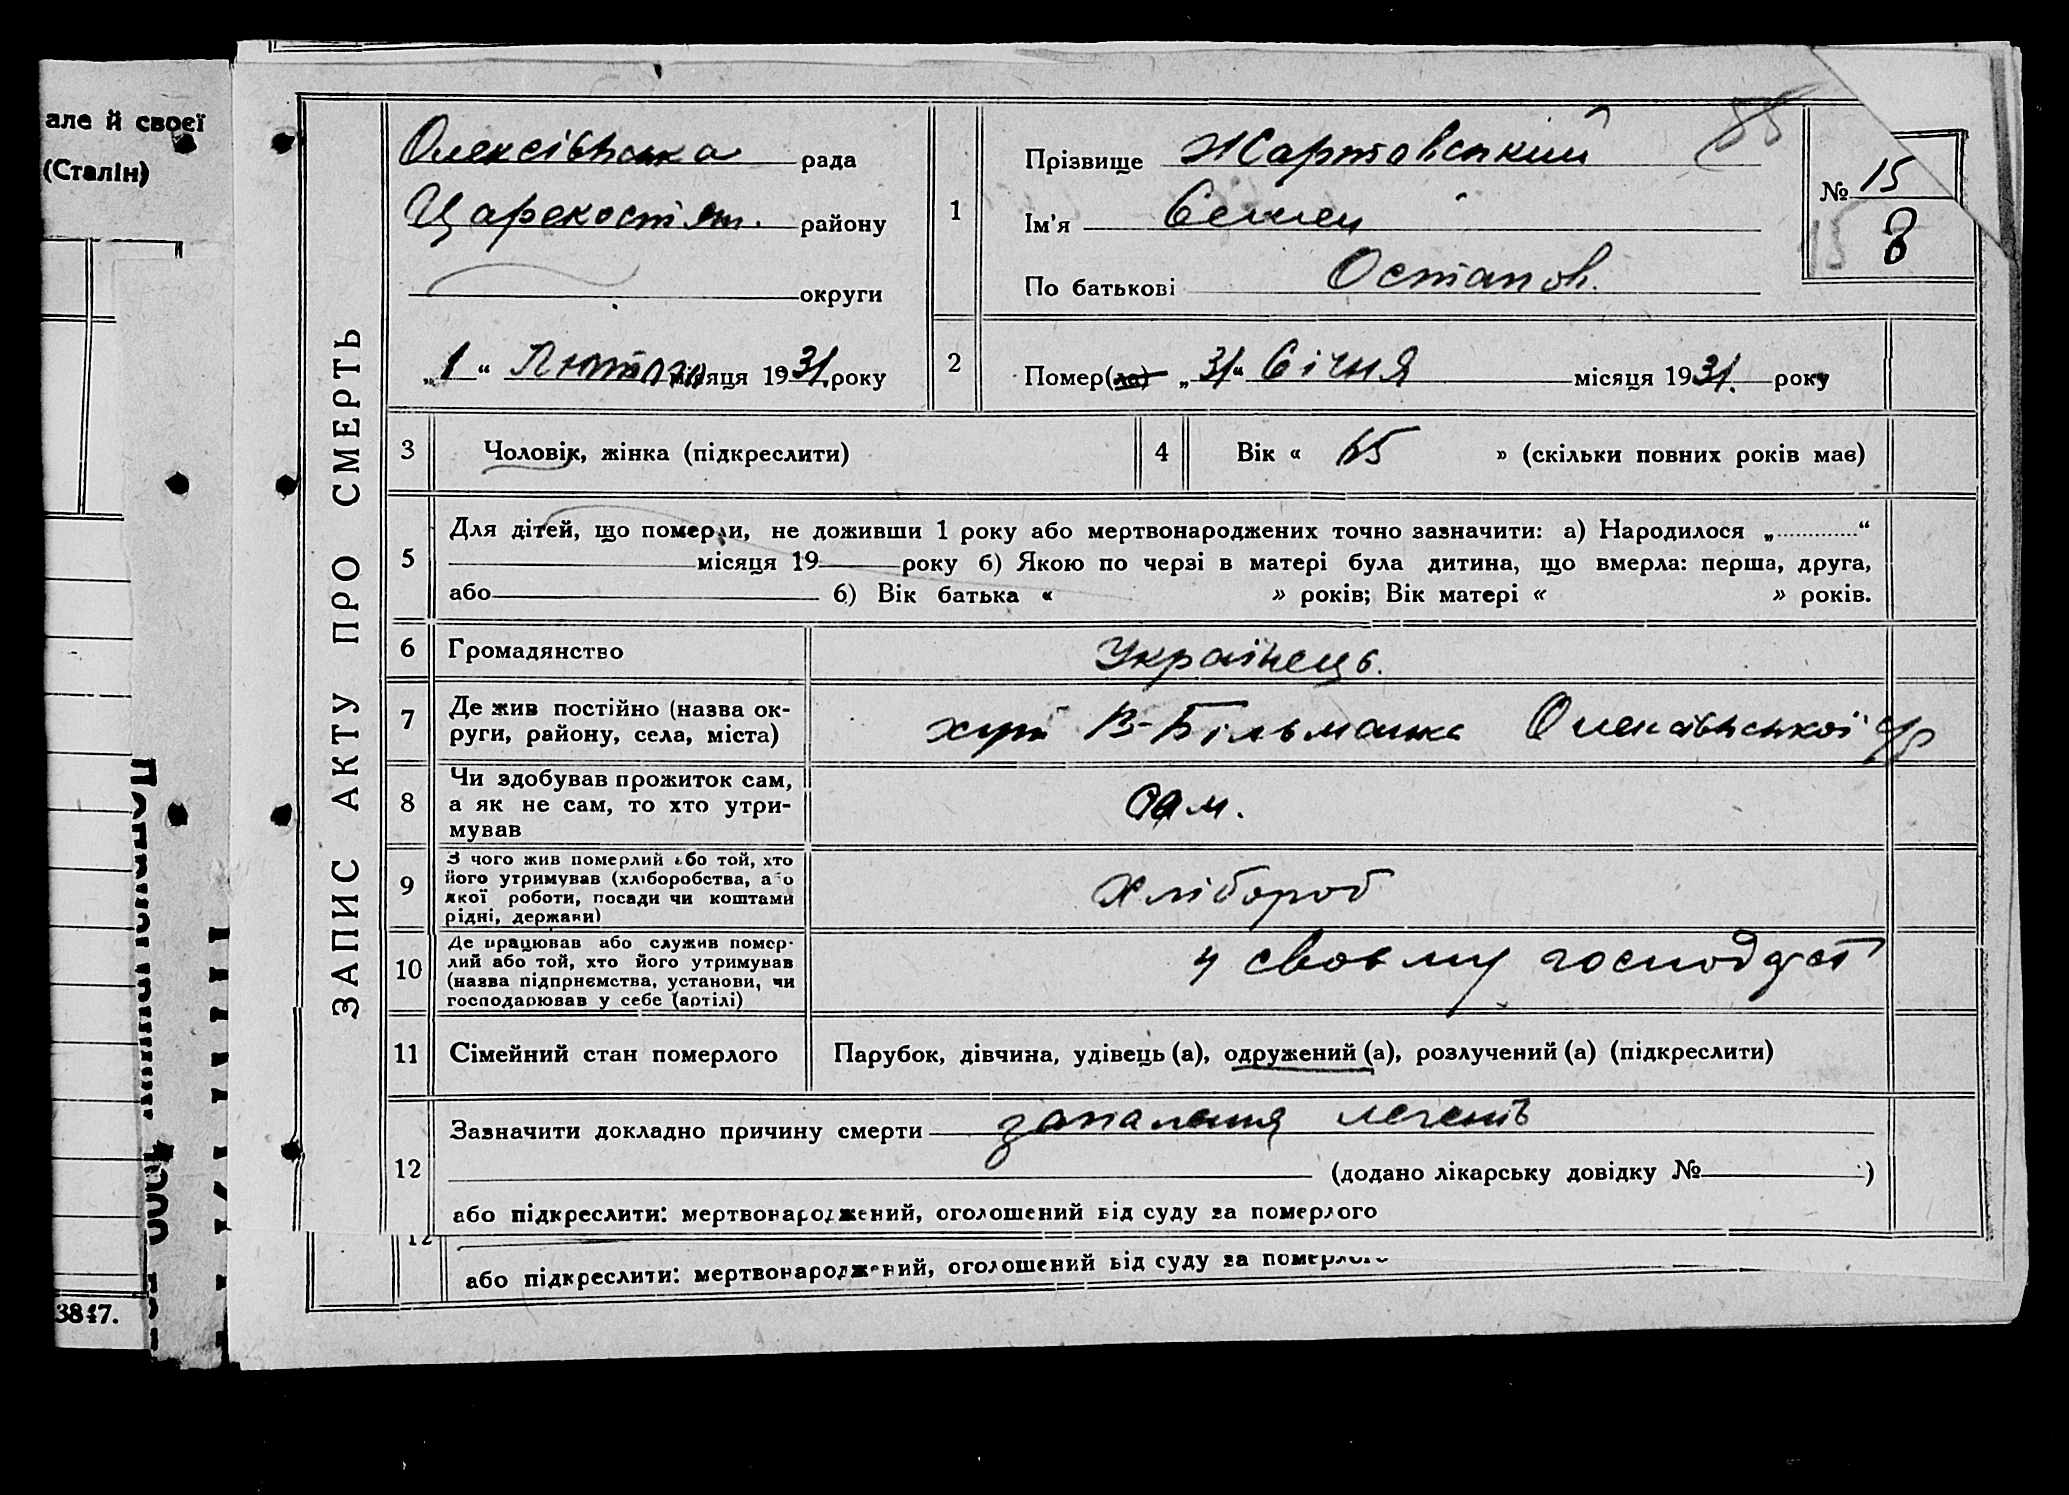 але й своєї
(Сталін)
3847.
ЗАПИС АКТУ ПРО СМЕРТЬ
Олексівська рада
Царекост'ян. району
округи
„1“ Лютого місяця 1931 року
1
Прізвище Жартовський
Ім'я Семен
По батькові Остапов.
88
№ 15
15 8
2
Помер(ла) „31“ Січня місяця 1931. року
3
Чоловік, жінка (підкреслити)
4
Вік « 65 » (скільки повних років має)
5
Для дітей, що померли, не доживши 1 року або мертвонароджених точно зазначити: а) Народилося „ “
місяця 19 року б) Якою по черзі в матері була дитина, що вмерла: перша, друга,
або б) Вік батька « » років; Вік матері « » років.
6
Громадянство
Українець.
7
Де жив постійно (назва ок-
руги, району, села, міста)
хут В-Більманка Олексівської с/р
8
Чи здобував прожиток сам,
а як не сам, то хто утри-
мував
Сам.
9
З чого жив померлий або той, хто
його утримував (хліборобства, або
якої роботи, посади чи коштами
рідні, держави)
Хлібороб
10
Де працював або служив помер-
лий або той, хто його утримував
(назва підприємства, установи, чи
господарював у себе (артілі)
у своєму господарст
11
Сімейний стан померлого
Парубок, дівчина, удівець (а), одружений (а), розлучений (а) (підкреслити)
12
Зазначити докладно причину смерти запалення легень
(додано лікарську довідку № )
або підкреслити: мертвонароджений, оголошений від суду за померлого
12
або підкреслити: мертвонароджений, оголошений від суду за померлого